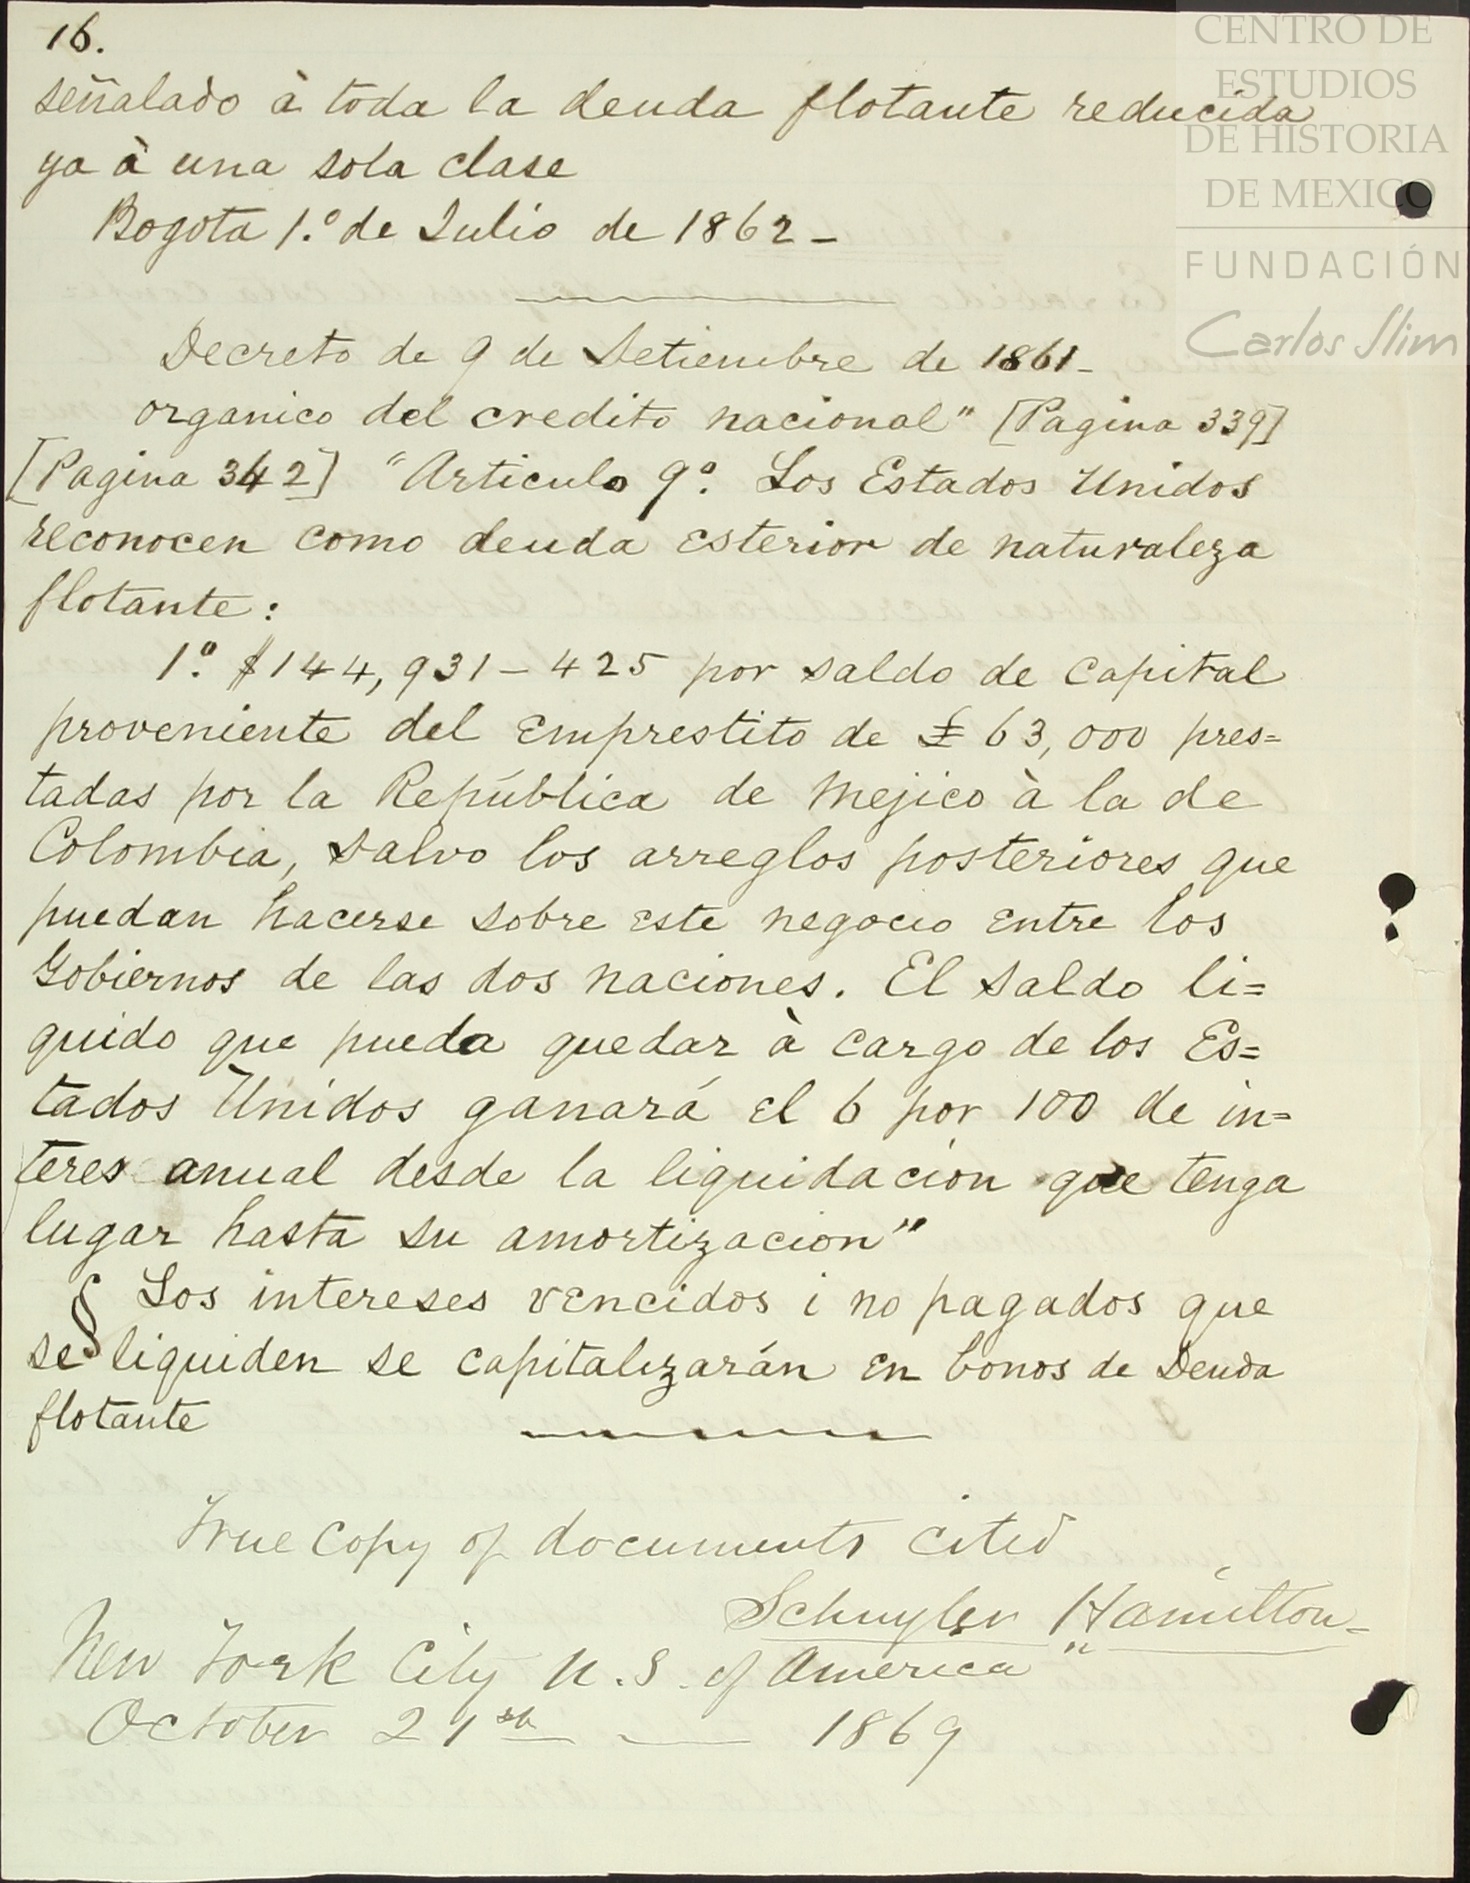 16.
señalado à toda la deuda flotante reducida
ya à una sola clase
Bogota 1.º de Julio de 1862 -
Decreto de 9 de Setiembre de 1861 -
organico del credito nacional" [Pagina 339]
[Pagina 342] "Articulo 9º. Los Estados Unidos
reconocen como deuda esterior de naturaleza
flotante:
1º. $144,931-425 por saldo de capital
proveniente del emprestito de £63,000 pres=
tadas por la República de Mejico à la de
Colombia, salvo los arreglos posteriores que
puedan hacerse sobre este negocio entre los
Gobiernos de las dos naciones. El saldo li=
quido que pueda quedar à cargo de los Es=
tados Unidos ganará el 6 por 100 de in=
teres anual desde la liquidacion que tenga
lugar hasta su amortizacion"
§ Los intereses vencidos i no pagados que
se liquiden se capitalizarán en bonos de Deuda
flotante
True Copy of documents cited
Schuyler Hamilton -
New York City U.S. of America "
October 21st — 1869
CENTRO DE
ESTUDIOS
DE HISTORIA
DE MEXICO
FUNDACIÓN
Carlos Slim